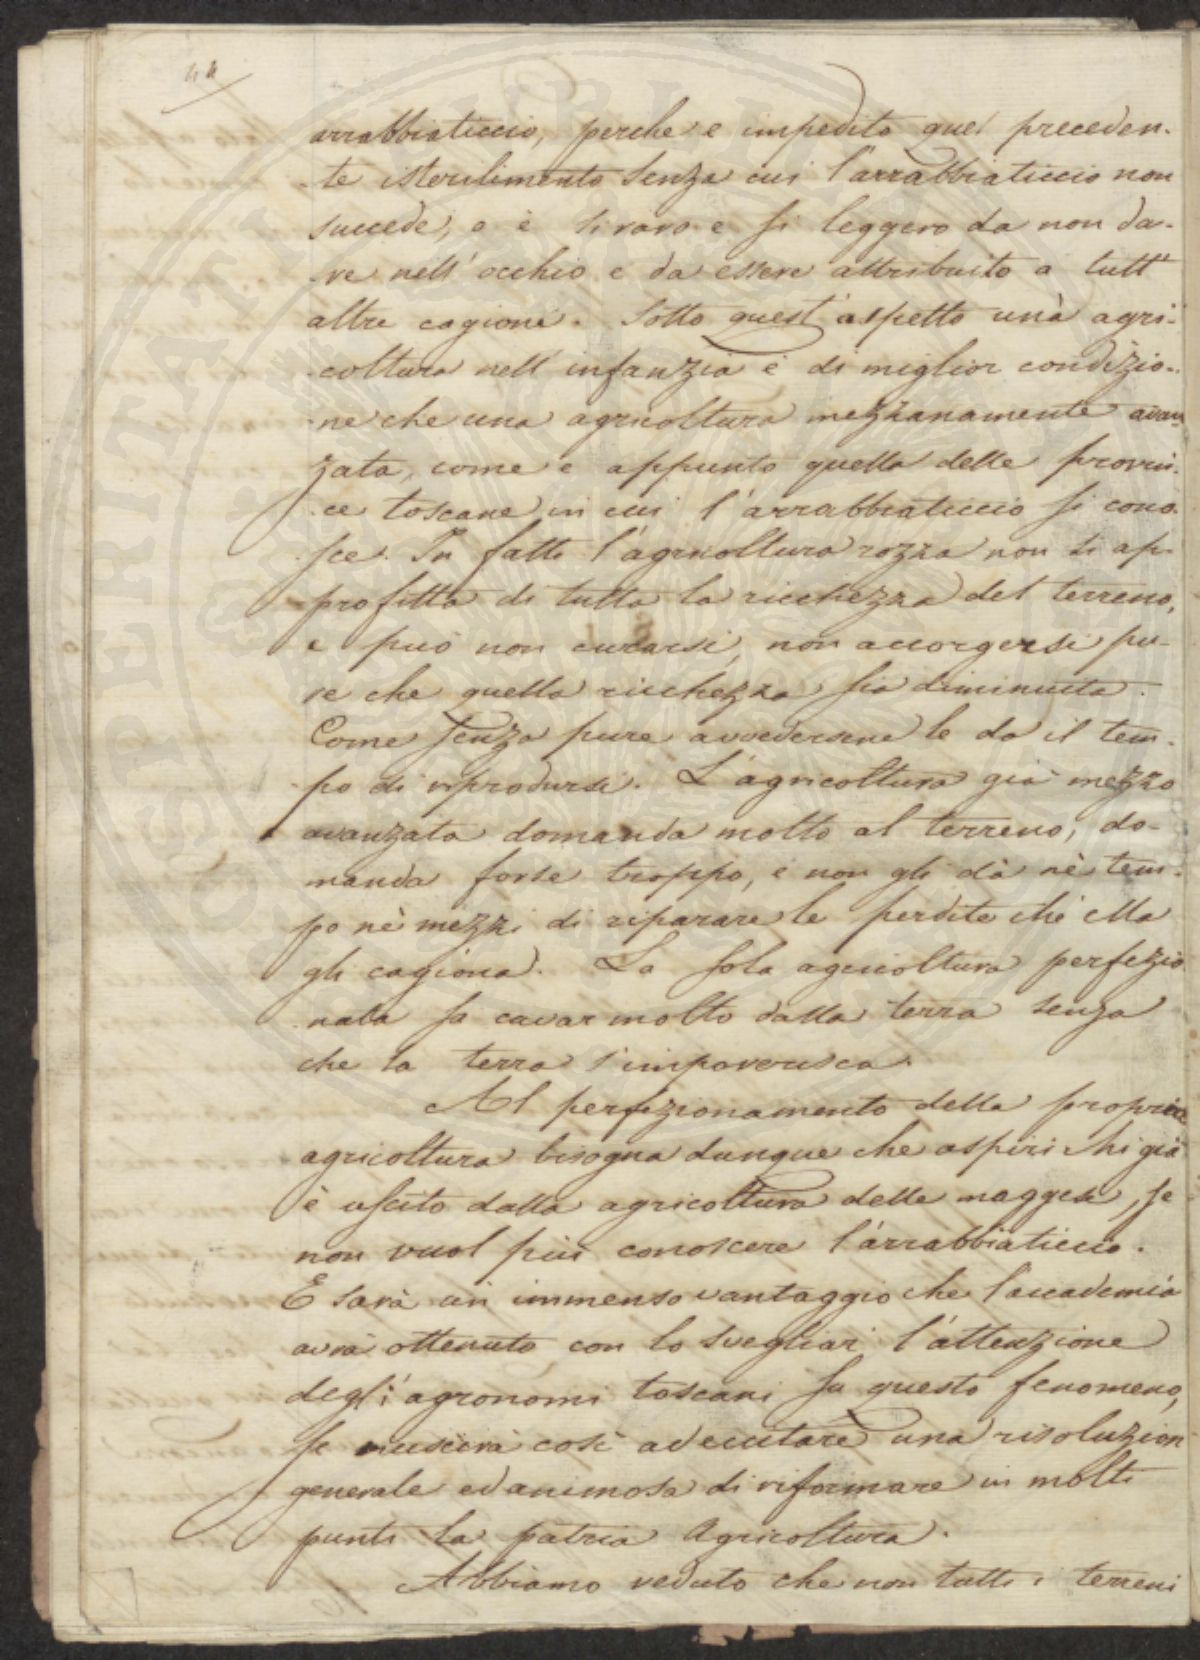 44
arrabbiaticcio, perche e impedito quel preceden-
-te isterilimento senza cui l'arrabbiaticcio non
succede, o è si raro e si leggero da non da-
-re nell'occhio e da essere attribuito a tutt'
altre cagioni. Sotto quest'aspetto una agri-
-coltura nell'infanzia è di miglior condizio-
-ne che una agricoltura mezzanamente avan
zata, come e appunto quella delle provin-
-ce toscane in cui l'arrabbiaticcio si cono-
-sce. In fatti l'agricoltura rozza non si ap-
-profitta di tutta la ricchezza del terreno,
e può non curarsi, non accorgersi pu-
re che quella ricchezza sia diminuita.
Come senza pure avvedersene le da il tem-
-po di riprodursi. L'agricoltura già mezzo
avanzata domanda molto al terreno, do-
manda forse troppo, e non gli dà nè tem-
po nè mezzi di riparare le perdite che ella
gli cagiona. La sola agricoltura perfezio
nata sa cavar molto dalla terra senza
che la terra s'impoverisca.
Al perfezionamento della propria
agricoltura bisogna dunque che aspiri chi già
è uscito dalla agricoltura delle maggesi, se
non vuol più conoscere l'arrabbiaticcio.
E sarà un immenso vantaggio che l'accademia
avrà ottenuto con lo svegliar l'attenzione
degli agronomi toscani su questo fenomeno,
se riuscirà così ad eccitare una risoluzion
generale ed animosa di riformare in molti
punti la patria Agricoltura.
Abbiamo veduto che non tutti i terreni